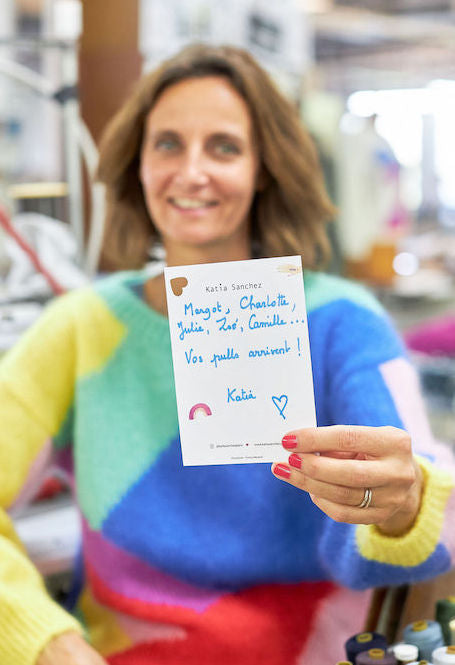 Katia Sanchez
Margot, Charlotte,
Julie, Zoé, Camille...
Vos pulls arrivent !
Katia